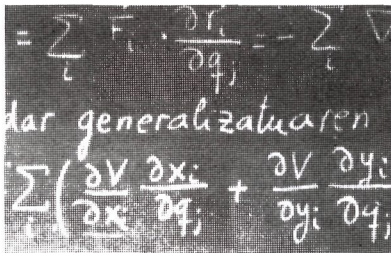 = ∑_i F_i · ∂r_i/∂q_j = - ∑_i ∇
dar generalizatuaren
∑_i ( ∂V/∂x ∂x_i/∂q_j + ∂V/∂y_i ∂y_i/∂q_j